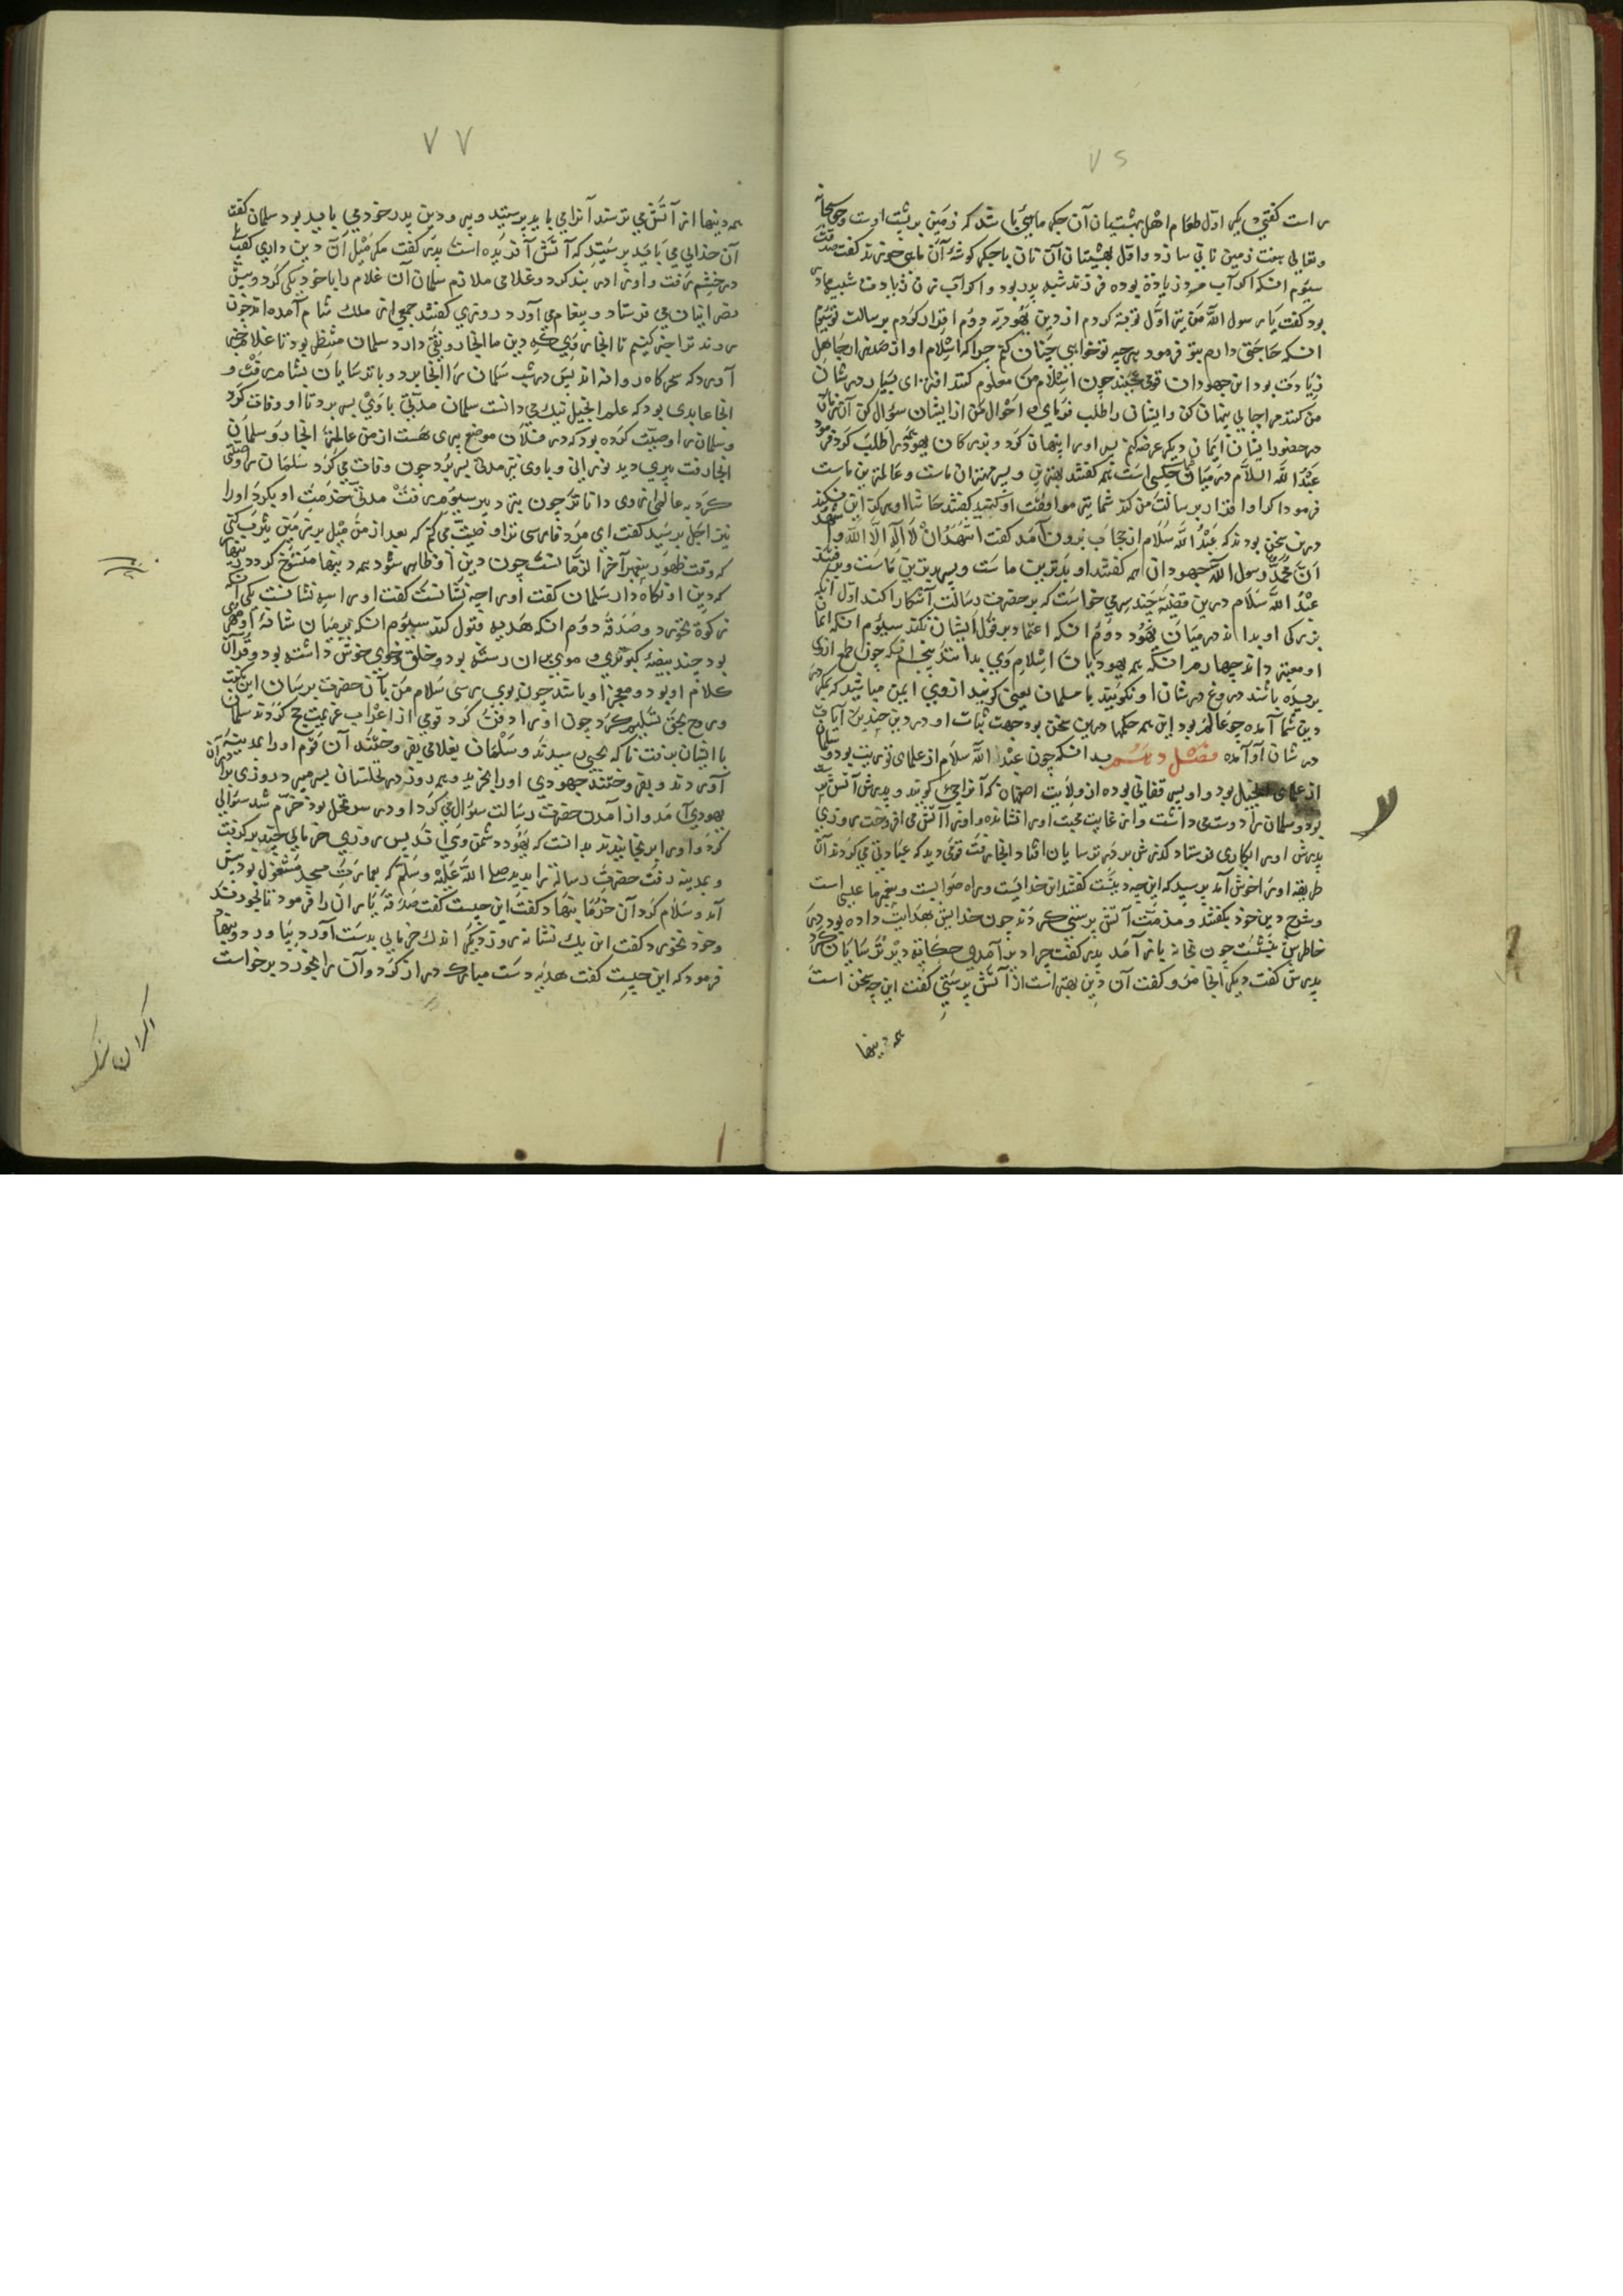 ۷۵
راست کفتی دیکر اوّل طعام اهل بهشتیان آن جکر ماهی باشد که زمین بر پشت اوست و حق سبحانه
وتعالی هفت زمین نانی سازد و اوّل بهشتیان آن نان با جکر کوشهٔ آن ماهی خورند کفت صدقت
سیوم انکه اکر آب مرد زیادة بوده فرزند شبه پدر بود و اکر آب زن زیادت شبیه مادر
بود کفت یا رسول الله من نیز اوّل توبه کردم از دین یهودیه دوم اقرار کردم برسالت تو سیوم
انکه حاجتی دارم بتو فرمود هرچه تو خواهی چنان کنم جراکه اسلام او از صد هزار جاهل
زیادت بود این جهودان قومی عجبند چون اسلام من معلوم کنند افترای بسیار در شان
من کنند مرا جایی پنهان کن وایشان را طلب فرمای و احوال من از ایشان سؤال کن آن زمان
در حضور ایشان ایمان دیکر عرضه کنم پس اورا پنهان کرد و بزرکان یهود را طلب کرد فرمود
عبد الله السلام در میان شما چکسی است همه کفتند بهترین و پسر بهتران ماست و عالمترین ماست
فرمود اکر او اقرار برسالت من کند شما نیز موافقت او کنید کفتند حاشا او هرکز این نکند
درین سخن بودند که عبد الله سلام از حجاب برون آمد کفت اشهد ان لا اله الا الله واشهد
ان محمد رسول الله جهودان همه کفتند او بدترین ماست و پسر بدترین ماست و رفتند
عبد الله سلام درین قضیه چند سر می خواست که بر حضرت رسالت آشکارا کند اول آنکه
بزرکی او بدانند در میان یهود دوم انکه اعتماد بر قول ایشان نکند سیوم انکه ایمان
او معتبر داند چهارم انکه همه یهودیان اسلام وی بدانند پنجم انکه چون طمع ازوی
بریده باشند دروغ در شان او نکویند با مسلمان یعنی کویند ازوی ایمن مباشید که مکر در
دین شما آمده جو عالم بود این همه حکمها درین سخن بود جهت ثبات او در دین چندین آیات
در شان او آمده فصل دهم بدانکه چون عبد الله سلام از علمای توریت بود و سلمان
از علمای انجیل بود و او پسر قفانی بوده از ولایت اصفهان که آنرا جی کویند و پدرش آتش پرست
بود و سلمان را دوست می داشت و از غایت محبت اورا نشانده و اورا آتش می افروخت روزی
پدرش اورا بکاری فرستاد کذرش بر دیر ترسایان افتاد انجا رفت قومی دید که عبادتی می کردند آن
طریقه اورا خوش آمد پرسید که این چه دینست کفتند این خدائیست و راه صوابست و پیغمبر ما عیسی است
وشرح دین خود بکفتند و مذمّت آتش پرستی کردند چون خدایش هدایت داده بود در
خاطرش بنشست چون بخانه باز آمد پدر کفت چرا دیر آمدی حکایة دیر ترسایان کرد
پدرش کفت دیکر انجا مرو کفت آن دین بهتر است از آتش پرستی کفت این چه سخن است
همه دینها
۷۷
همه دینها از آتش می ترسند آنرا می باید پرستید و بر و دین پدر خود می باید بود سلمان کفت
آن خدایی می باید پرستید که آتش آفریده است پدر کفت مکر میل آن دین داری کفت
در خشم رفت و اورا در بند کرد و غلامی ملازم سلمان آن غلام را با خود یکی کرد و پیش
نصرانیان می فرستاد و پیغام می آورد روزی کفتند جمعی از ملک شام آمده اند چون
روند ترا خبر کنیم تا انجا روی که دین ما انجا رونقی دارد سلمان منتظر بود تا غلام خبر
آورد که سحرکاه روانه اند پس در شب سلمان را انجا برد و با ترسایان بشام رفت و
انجا عابدی بود که علم انجیل نیک می دانست سلمان مدّتی با وی بسر برد تا او وفات کرد
وسلمان را وصیّت کرده بود که در فلان موضع پیری هست از من عالمتر انجا رو سلمان
انجا رفت پیری دید نورانی و با وی نیز مدتی بسر برد چون وفات می کرد سلمان را وصیتی
کرد به عالمی ازوی داناتر چون بنزد پیر سیوم رفت مدتی خدمت او بکرد اورا
نیز اجل برسید کفت ای مرد فارسی ترا وصیت می کنم که بعد از من میل بزمین یثرب کنی
که وقت ظهور پیغمبر آخر الزمانست چون دین او ظاهر شود همه دینها منسوخ کردد زینهار
که دین او نکاه دار سلمان کفت اورا چه نشانست کفت اورا سه نشانست یکی آنکه
زکوة نخورد و صدقه دوم انکه هدیه قبول کند سیوم انکه بر میان شانهٔ او مهری
بود چند بیضهٔ کبوتری و موی بران رسته بود و خلق و خوی خوش داشته بود و قرآن
کلام او بود و معجز او باشد چون بوی برسی سلام من بآن حضرت برسان این بکفت
وروح بحق تسلیم کرد چون اورا دفن کرد قومی از اعراب عزیمت حج کردند سلمان
با ایشان برفت تا که بحی رسیدند و سلمان بغلامی بفروختند آن قوم اورا بمدینه
آوردند و بفروختند جهودی اورا بخرید و هر روز در نخلستان بسر می برد روزی برادر آن
یهودی آمد و از آمدن حضرت رسالت سؤال می کرد او در سر نخل بود خرّم شد سؤالی
کرد و اورا برنجانیدند بدانست که یهود دشمن وی اند پس روزی خرمایی چند برکرفت
وبمدینه رفت حضرت رسالة را بدید صلی الله علیه وسلّم که بعمارت مسجد مشغول بود پیش
آمد و سلام کرد آن خرما بنهاد کفت این چیست کفت صدقه یاران را فرمود تا بخوردند
وخود نخورد کفت این یک نشانه روز دیکر اندک خرمایی بدست آورد بیاورد و بنهاد
فرمود که این چیست کفت هدیه دست مبارک دراز کرد و آن را بخورد برخواست